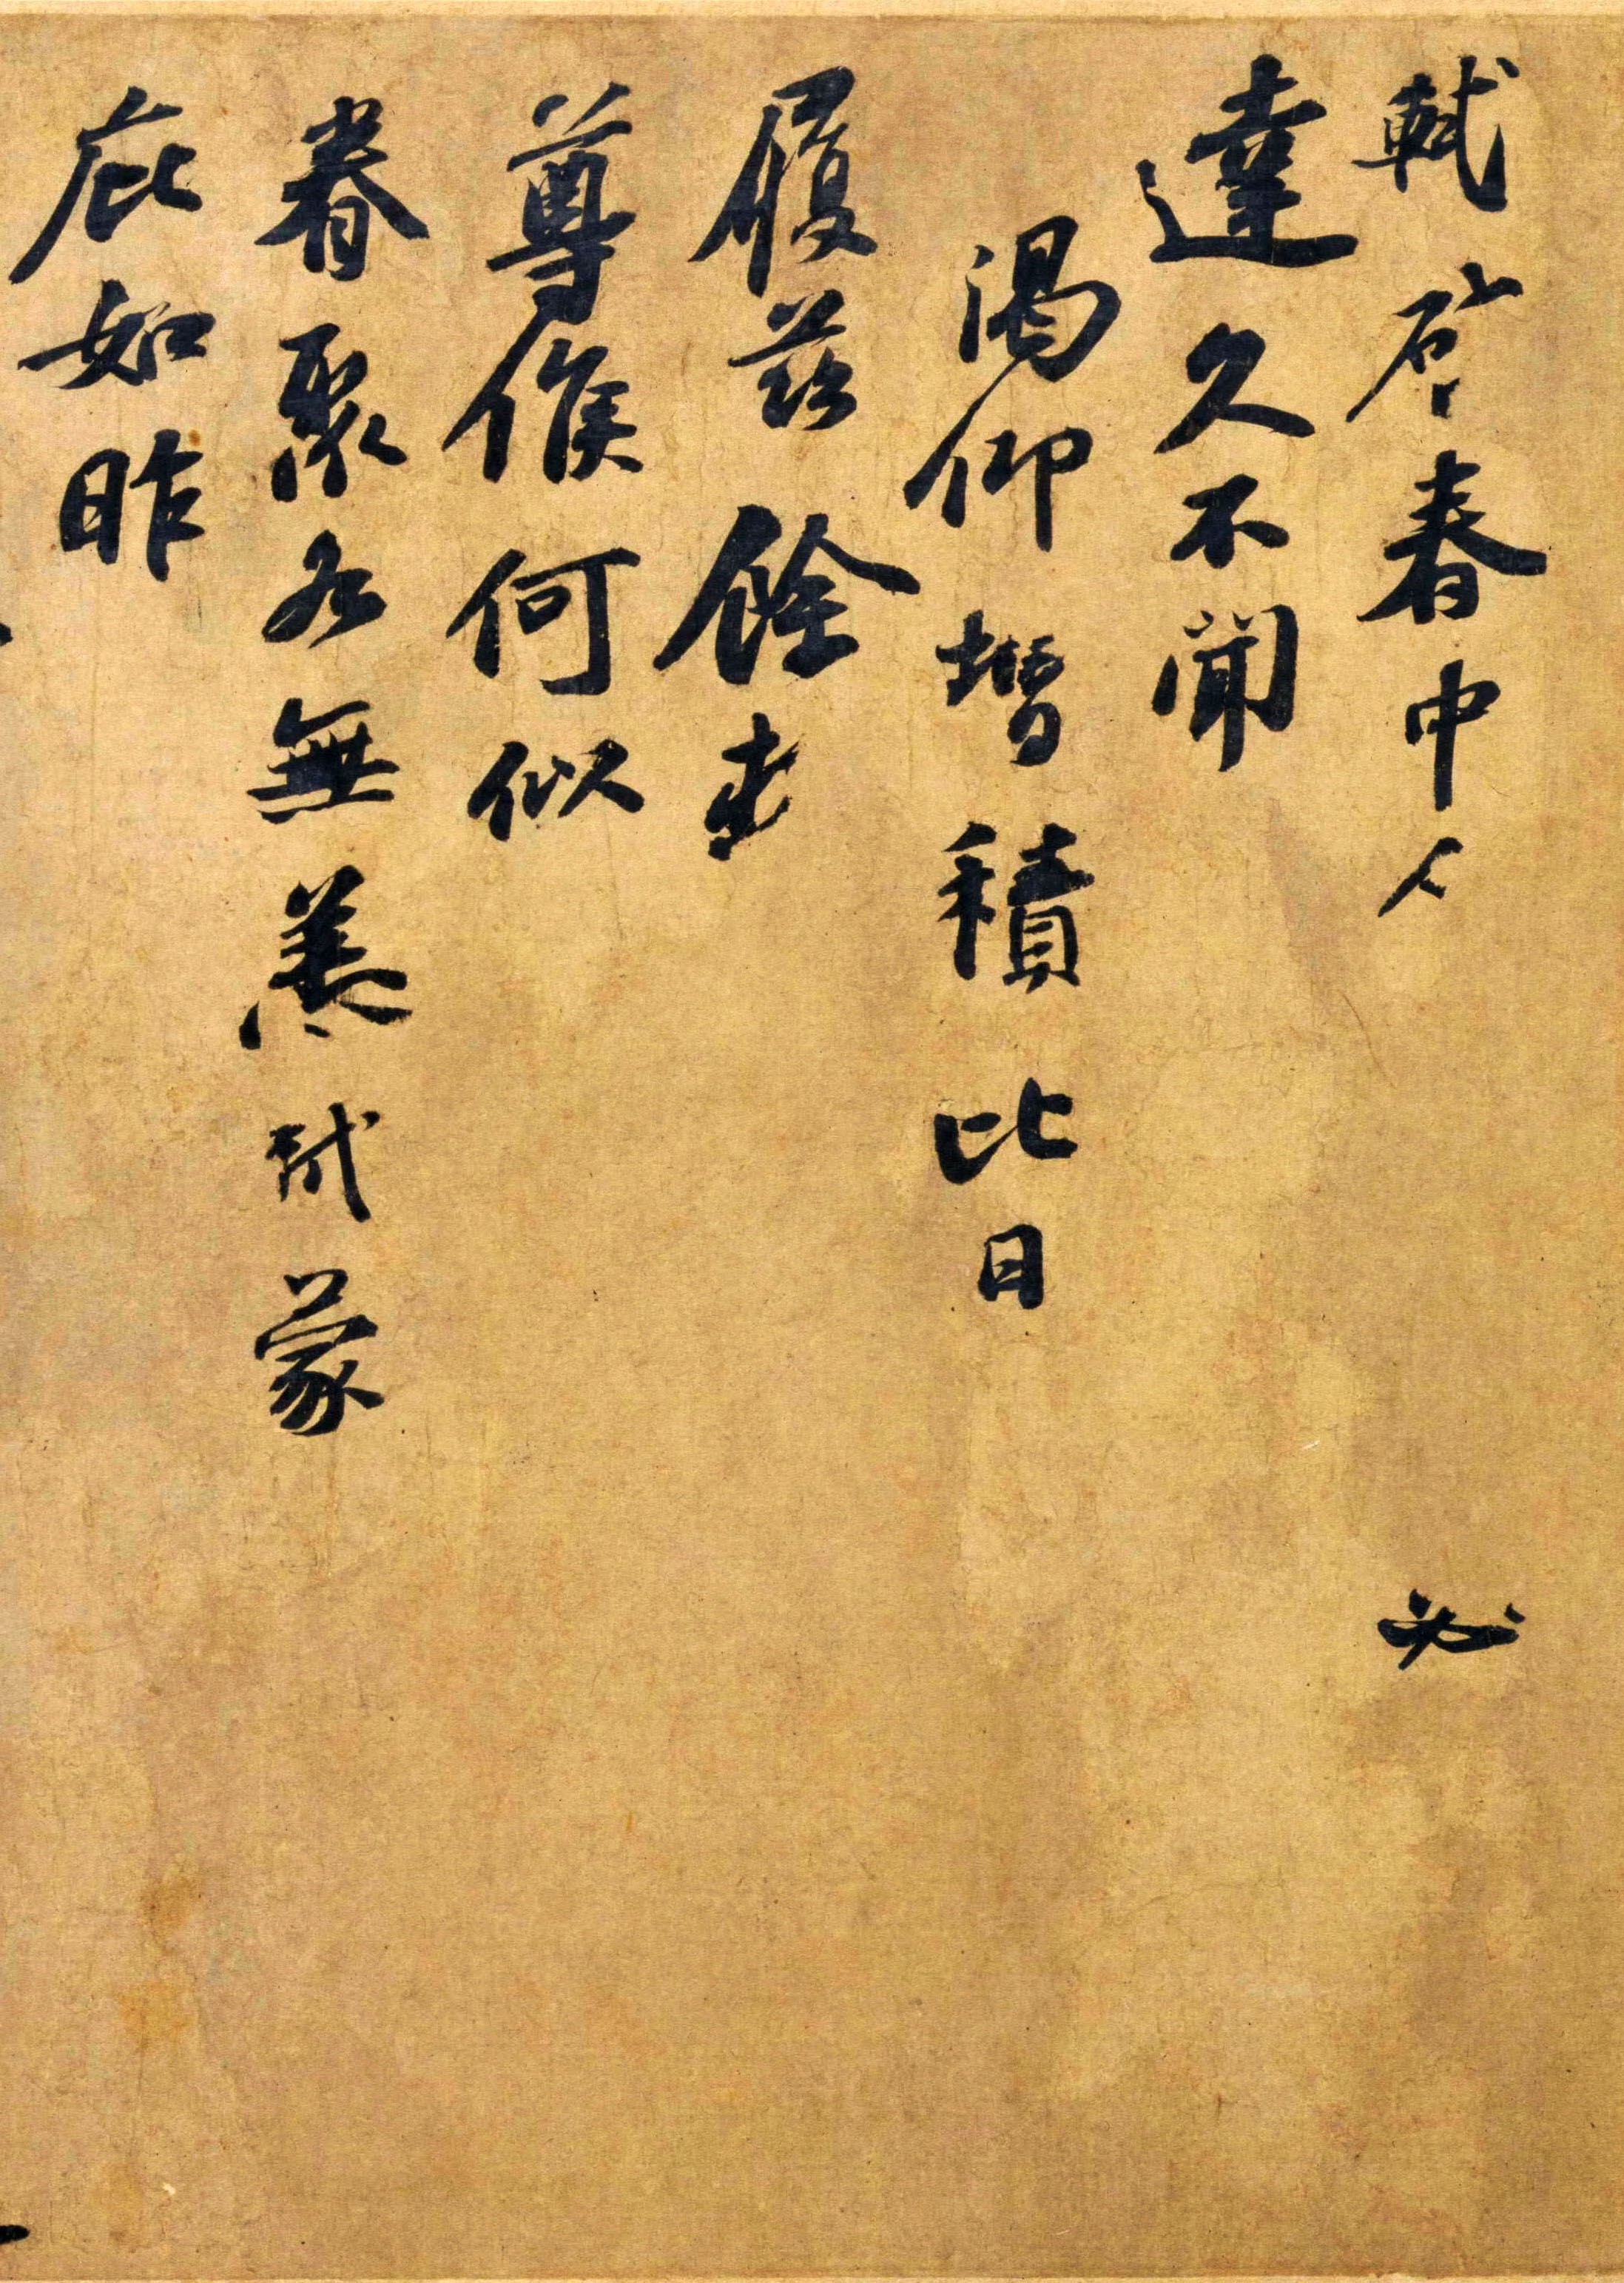 軾啓春中人必
達久不聞
渴仰增積比日
履茲餘
尊候何似
眷聚各無恙軾蒙
庇如昨